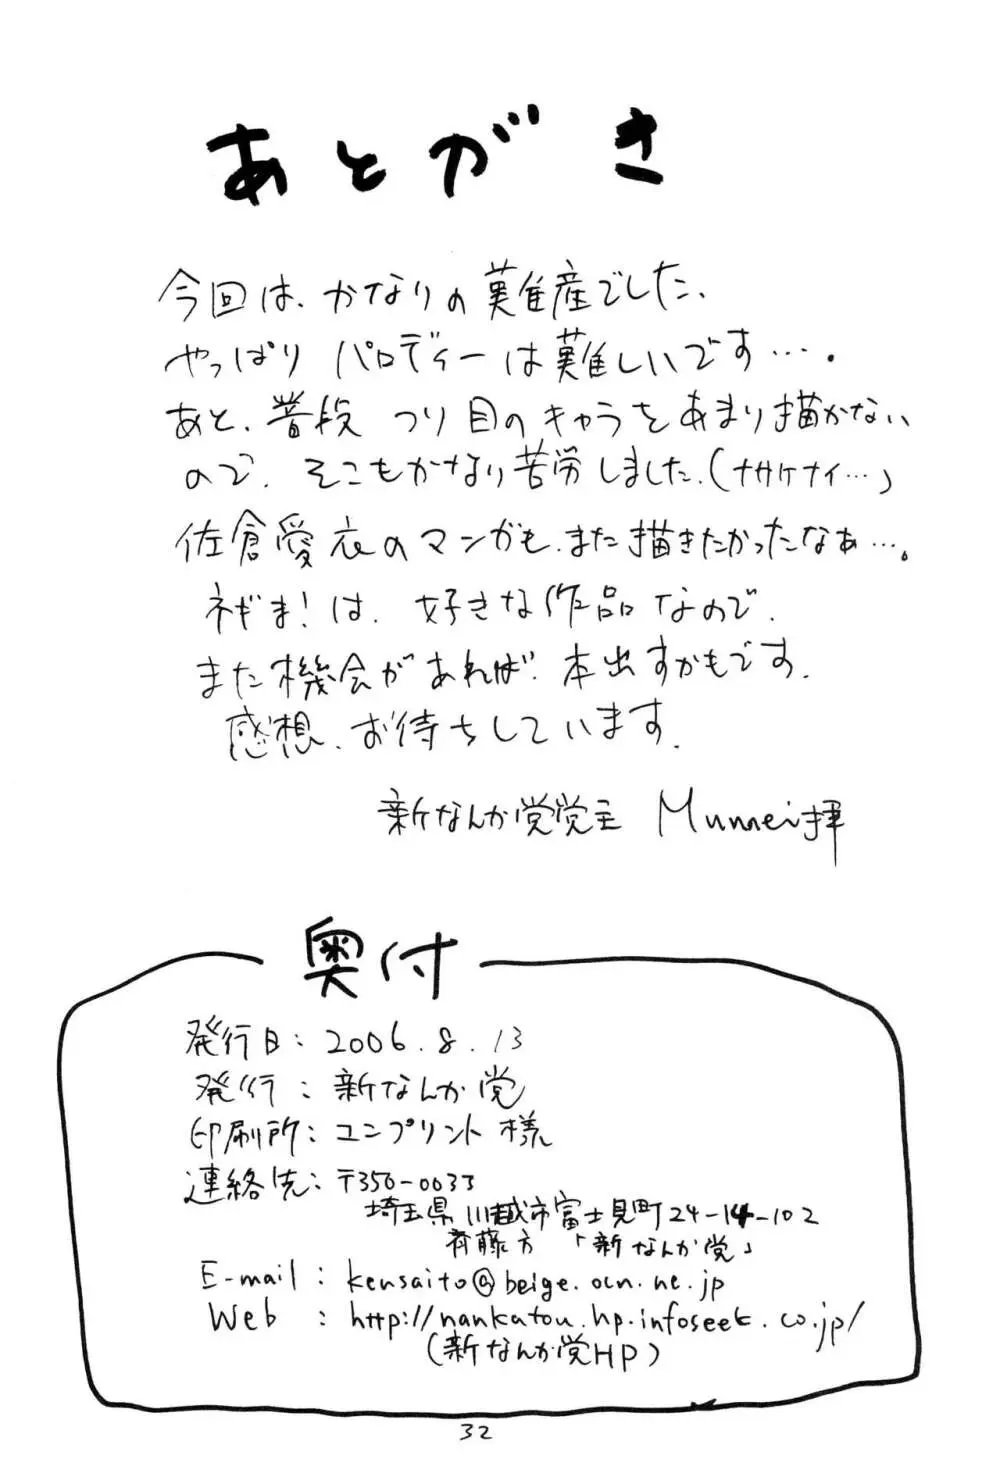 あとがき
今回は、かなりの難産でした、
やっぱり パロディーは難しいです…．
あと、普段 つり目のキャラをあまり描かない
ので、そこもかなり苦労しました、（ナサケナイ…」
佐倉愛衣のマンガも、また描きたかったなぁ…。
ネギま！は、好きな作品なので、
また機会があれば、本出すかもです、
感想、お待ちしています、
新なんか党党主 Munmei拝
奥付
発行日：2006.8.13
発行：新なんか党
印刷所：コンプリント様
連絡先：〒350-0033
埼玉県川越市富士見町24-14-102
斉藤方 「新なんか党」
E-mail : kensaito@beige.ocn.ne.jp
Web : http://nankatou.hp.infoseek.co.jp/
（新なんか党HP）
32